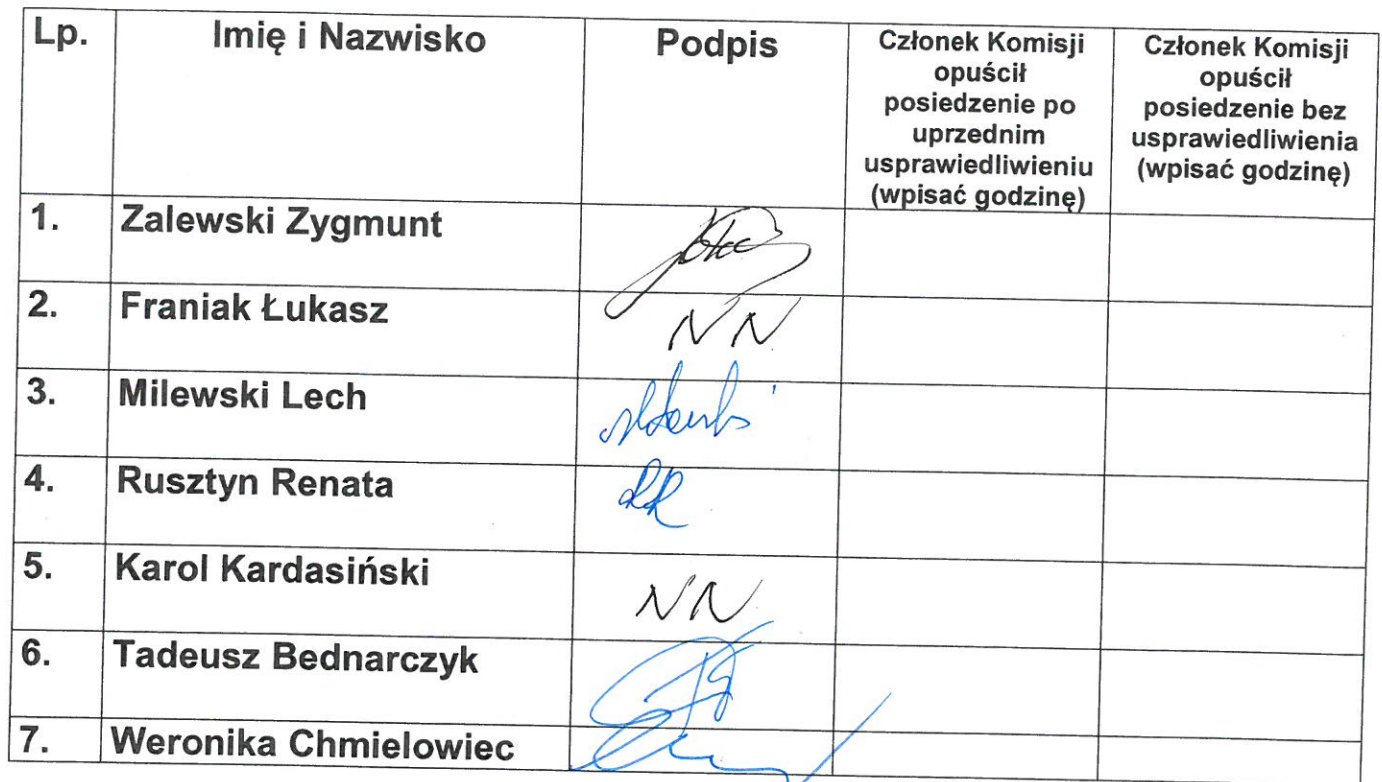 Lp. Imię i Nazwisko Podpis Członek Komisji opuścił posiedzenie po uprzednim usprawiedliwieniu (wpisać godzinę) Członek Komisji opuścił posiedzenie bez usprawiedliwienia (wpisać godzinę)
1. Zalewski Zygmunt
2. Franiak Łukasz NN
3. Milewski Lech
4. Rusztyn Renata RR
5. Karol Kardasiński NN
6. Tadeusz Bednarczyk
7. Weronika Chmielowiec